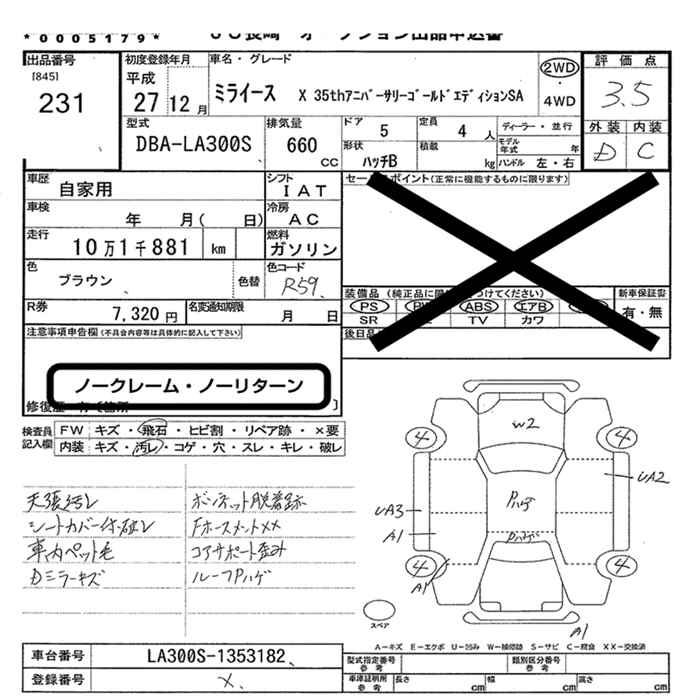 *0005179*
出品番号
[845]
231
初度登録年月
平成
27 12 月
車名・グレード
ミライース X 35thアニバーサリーゴールドエディションSA
2WD
・
4WD
評価点
3.5
外装 内装
D C
型式
DBA-LA300S
排気量
660
CC
ドア
5
定員
4 人
ディーラー・並行
形状
ハッチB
積載
kg
モデル年式 年
ハンドル 左・右
車歴
自家用
シフト
IAT
車検
年 月( 日)
冷房
AC
走行
10万1千881 km
燃料
ガソリン
色
ブラウン
色替
色コード
R59
R券
7,320 円
名変通知期限
月 日
セー ポイント(正常に機能するものに限ります)
装備品 (純正品に つけてください)
PS ABS エアB
SR TV カワ
新車保証書
有・無
後日品
注意事項申告欄(不具合内容等は具体的に記入して下さい)
ノークレーム・ノーリターン
検査員
記入欄
FW キズ・飛石・ヒビ割・リペア跡・×要
内装 キズ・汚レ・コゲ・穴・スレ・キレ・破レ
天張汚レ
シートカバー付・破レ
車内ペット毛
Dミラーキズ
ボンネット脱着跡
Fホースメント××
コアサポート歪み
ルーフPハゲ
W2
4
4
UA2
Pハゲ
UA3
A1
Pハゲ
4
4
A1
A1
スペア
A－キズ E－エクボ U－凹み W－補修跡 S－サビ C－腐食 XX－交換済
車台番号
LA300S-1353182
登録番号
×
型式指定番号
参考
類別区分番号
参考
車庫証明用
参考
長さ cm
幅 cm
高さ cm